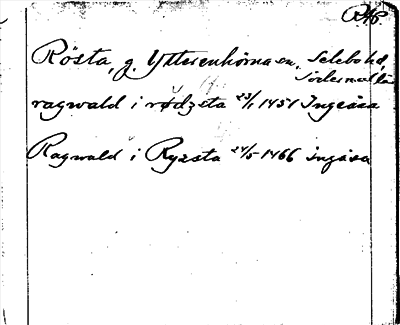 RAP.
Rösta, g. Ytterenhörna sn, Selebo hd,
Södermanl. län
ragwald i rødzsta 23/1 1451 Ingeåsa
Ragwald i Rysta 24/5 1466 ingåsa